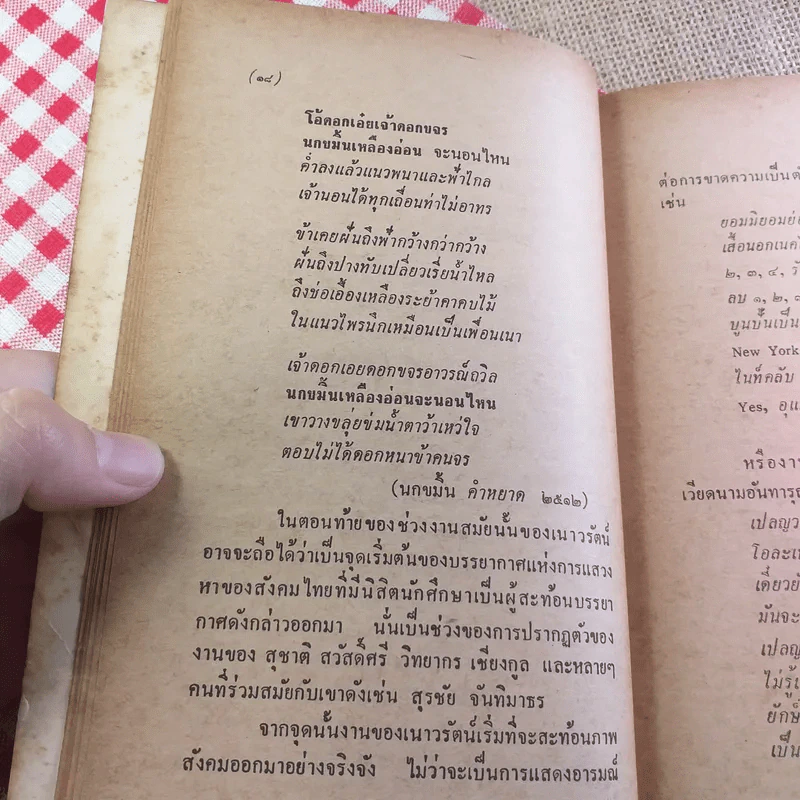 (๑๘)
โอ้ดอกเอ๋ยเจ้าดอกขจร
นกขมิ้นเหลืองอ่อน จะนอนไหน
ค่ำลงแล้วแนวพนาและฟ้าไกล
เจ้านอนได้ทุกเถื่อนท่าไม่อาทร
ข้าเคยฝันถึงฟ้ากว้างกว่ากว้าง
ฝันถึงปางทับเปลี่ยวเรี่ยน้ำไหล
ถึงช่อเอื้องเหลืองระย้าคาคบไม้
ในแนวไพรนึกเหมือนเป็นเพื่อนเนา
เจ้าดอกเอยดอกขจรอาวรณ์ถวิล
นกขมิ้นเหลืองอ่อนจะนอนไหน
เขาวางขลุ่ยข่มน้ำตาว้าเหว่ใจ
ตอบไม่ได้ดอกหนาข้าคนจร
(นกขมิ้น คำหยาด ๒๕๑๒)
ในตอนท้ายของช่วงงานสมัยนั้นของเนาวรัตน์
อาจจะถือได้ว่าเป็นจุดเริ่มต้นของบรรยากาศแห่งการแสวง
หาของสังคมไทยที่มีนิสิตนักศึกษาเป็นผู้สะท้อนบรรยา
กาศดังกล่าวออกมา นั่นเป็นช่วงของการปรากฏตัวของ
งานของ สุชาติ สวัสดิ์ศรี วิทยากร เชียงกูล และหลายๆ
คนที่ร่วมสมัยกับเขาดังเช่น สุรชัย จันทิมาธร
จากจุดนั้นงานของเนาวรัตน์เริ่มที่จะสะท้อนภาพ
สังคมออกมาอย่างจริงจัง ไม่ว่าจะเป็นการแสดงอารมณ์
ต่อการขาดความเป็น
เช่น
ยอมมิยอม
เสื้อนอก
๒, ๓, ๔,
ลบ ๑, ๒,
บูนบั้นเป็น
New York
ไนท์คลับ
Yes,
หรืองาน
เวียดนามอันทารุณ
เปลญวน
โอละ
เดี่ยว
มันจะ
เปลญ
ไม่รู้
ยักษ์
เป็น